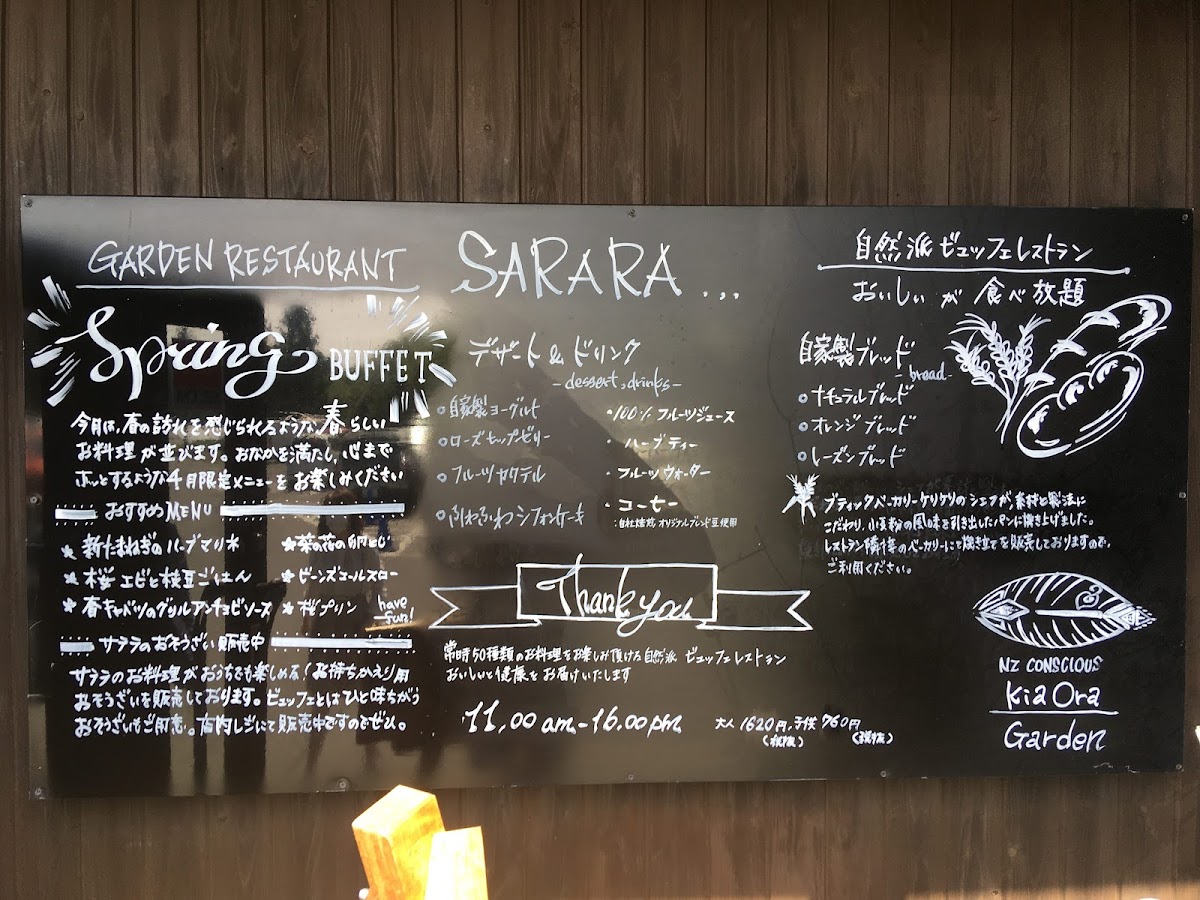 GARDEN RESTAURANT SARARA...
Spring BUFFET
今月は、春の訪れを感じられるような、春らしい
お料理が並びます。おなかを満たし、心まで
ホッとするような4月限定メニューをお楽しみください
おすすめMENU
★新たまねぎのハーブマリネ
★菜の花の卵とじ
★桜エビと枝豆ごはん
★ビーンズコールスロー
★春キャベツのグリルアンチョビソース
★桜プリン
have fun!
サララのおそうざい販売中
サララのお料理がおうちでも楽しめる!お持ちかえり用
おそうざいを販売しております。ビュッフェとはひと味ちがう
おそうざいもご用意。店内レジにて販売中ですのでぜひ。
デザート & ドリンク
-dessert, drinks-
○自家製ヨーグルト
○ローズヒップゼリー
○フルーツカクテル
○ふわふわシフォンケーキ
・100% フルーツジュース
・ハーブティー
・フルーツウォーター
・コーヒー
:自社焙煎 オリジナルブレンド豆使用
Thank you
常時50種類のお料理をお楽しみ頂ける自然派ビュッフェレストラン
おいしいと健康をお届けいたします
11.00am-16.00pm
大人1620円,子供760円
(税抜)
(税抜)
自然派ビュッフェレストラン
おいしいが食べ放題
自家製ブレッド
bread-
○ナチュラルブレッド
○オレンジブレッド
○レーズンブレッド
ブティックベーカリーケリケリのシェフが、素材と製法に
こだわり、小麦粉の風味を引き出したパンに焼き上げました。
レストラン隣接のベーカリーにて焼き立てを販売しておりますので、
ご利用ください。
NZ CONSCIOUS
Kia Ora
Garden